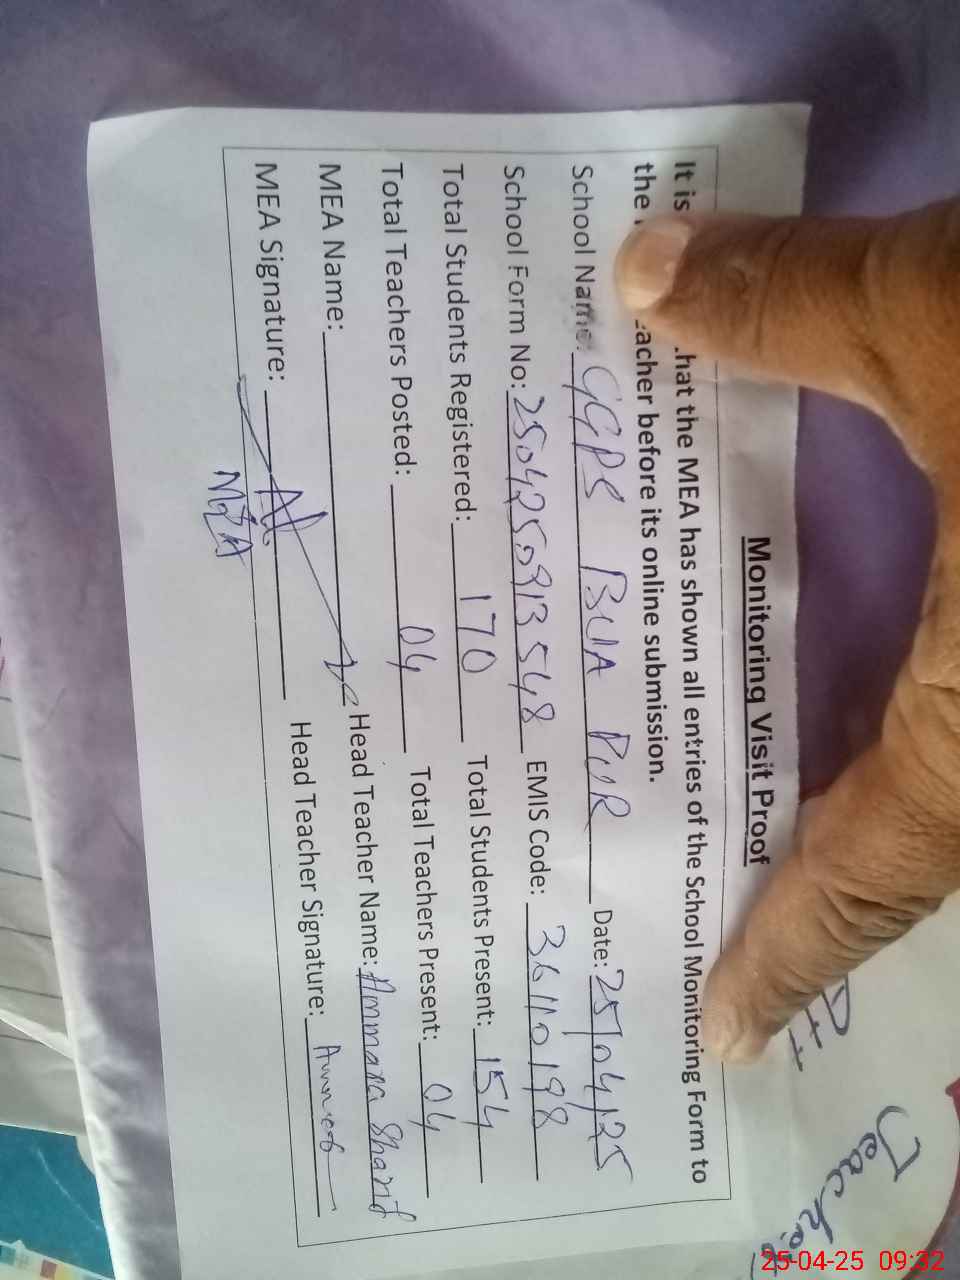 Monitoring Visit Proof
It is hat the MEA has shown all entries of the School Monitoring Form to
the eacher before its online submission.
School Name: GGPS BUA PUR Date: 25/04/25
School Form No: 2504250913548 EMIS Code: 36110198
Total Students Registered: 170 Total Students Present: 154
Total Teachers Posted: 04 Total Teachers Present: 04
MEA Name: Head Teacher Name: Ammara Sharif
MEA Signature: Head Teacher Signature:
Teacher
25-04-25 09:32